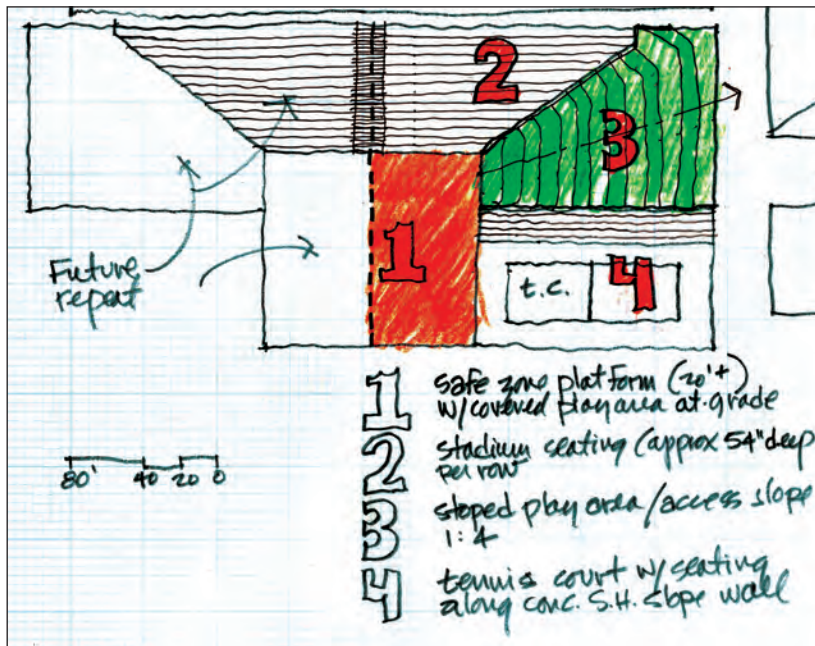 2
3
1
t.c.
4
Future
repeat
80' 40 20 0
1 safe zone platform (20'+)
w/covered play area at grade
2 stadium seating (approx 54" deep
per row
3 sloped play area/access slope
1:4
4 tennis court w/seating
along conc. S.H. slope wall